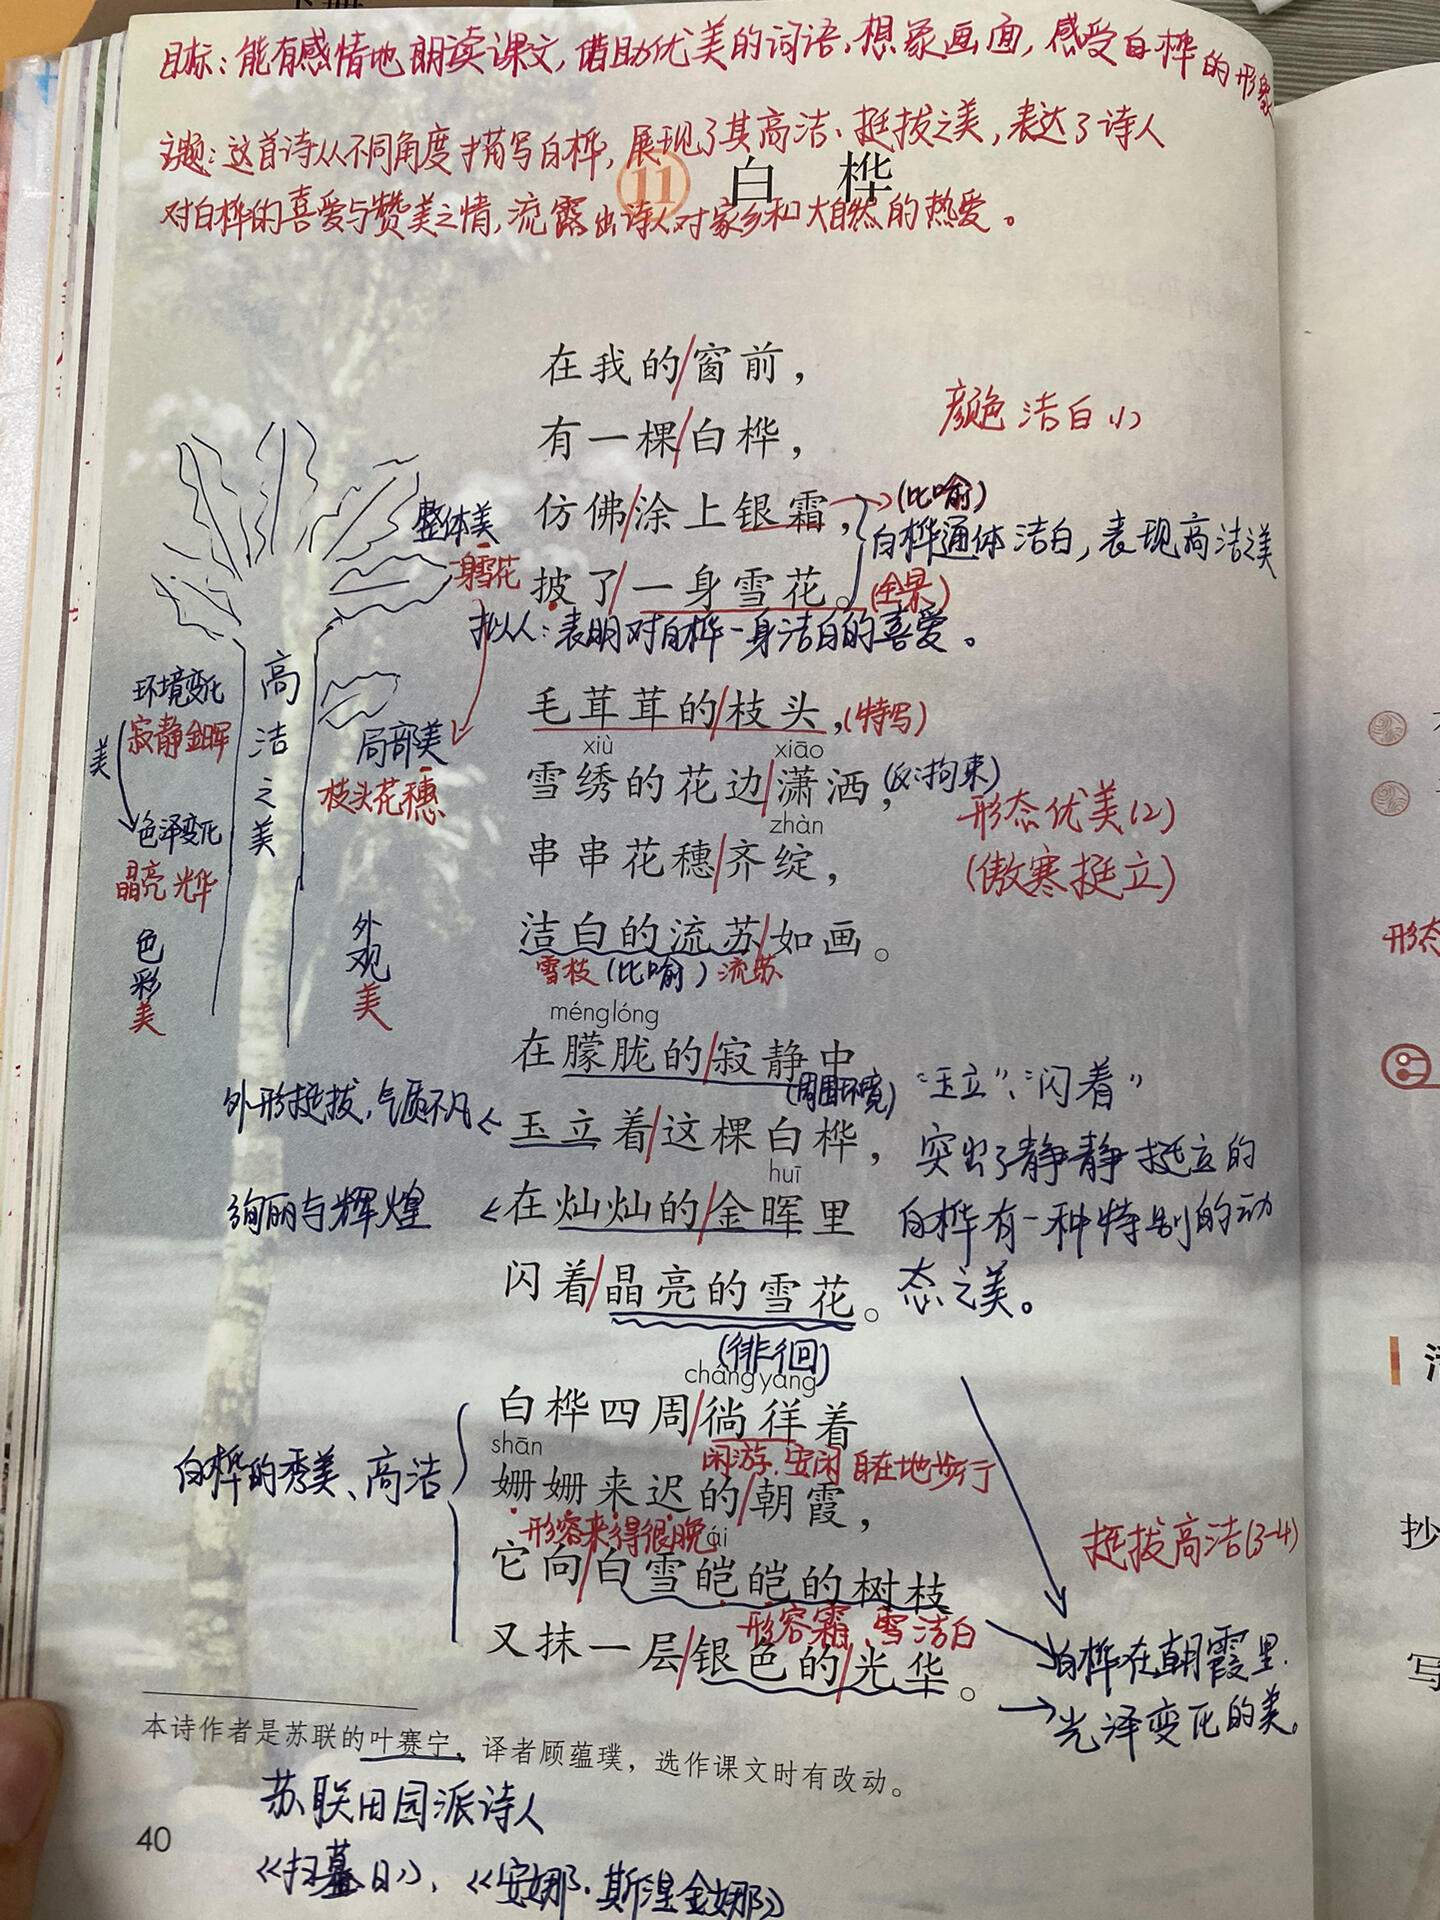 目标：能有感情地朗读课文，借助优美的词语，想象画面，感受白桦的形象
主题：这首诗从不同角度描写白桦，展现了其高洁、挺拔之美，表达了诗人
11 白桦
对白桦的喜爱与赞美之情，流露出诗人对家乡和大自然的热爱。
在我的/窗前，
颜色 洁白(1)
有一棵/白桦，
仿佛/涂上银霜，
(比喻)
整体美
白桦通体洁白，表现高洁之美
一身雪花
披了/一身雪花。
(全景)
拟人：表明对白桦一身洁白的喜爱。
环境变化
寂静金晖
美
色泽变化
晶亮 光华
色彩美
高洁之美
局部美
枝头花穗
外观美
毛茸茸的/枝头，
(特写)
xiù xiāo
雪绣的花边/潇洒，
(反:拘束)
形态优美(2)
zhàn
串串花穗/齐绽，
(傲寒挺立)
洁白的流苏/如画。
雪枝(比喻)流苏
ménglóng
在朦胧的/寂静中
(周围环境)
“玉立”、“闪着”
外形挺拔，气质不凡
玉立着/这棵白桦，
突出了静静挺立的
huī
绚丽与辉煌
在灿灿的/金晖里
白桦有一种特别的动
闪着/晶亮的雪花。
态之美。
(徘徊)
cháng yáng
白桦四周/徜徉着
闲游，安闲自在地步行
shān
白桦的秀美、高洁
姗姗来迟的/朝霞，
形容来得很晚
ái
它向/白雪皑皑的树枝
挺拔高洁(3-4)
形容霜、雪洁白
又抹一层/银色的/光华。
白桦在朝霞里
光泽变化的美。
本诗作者是苏联的叶赛宁，译者顾蕴璞，选作课文时有改动。
苏联田园派诗人
40
《扫墓日》、《安娜·斯涅金娜》
形态
活
抄
写